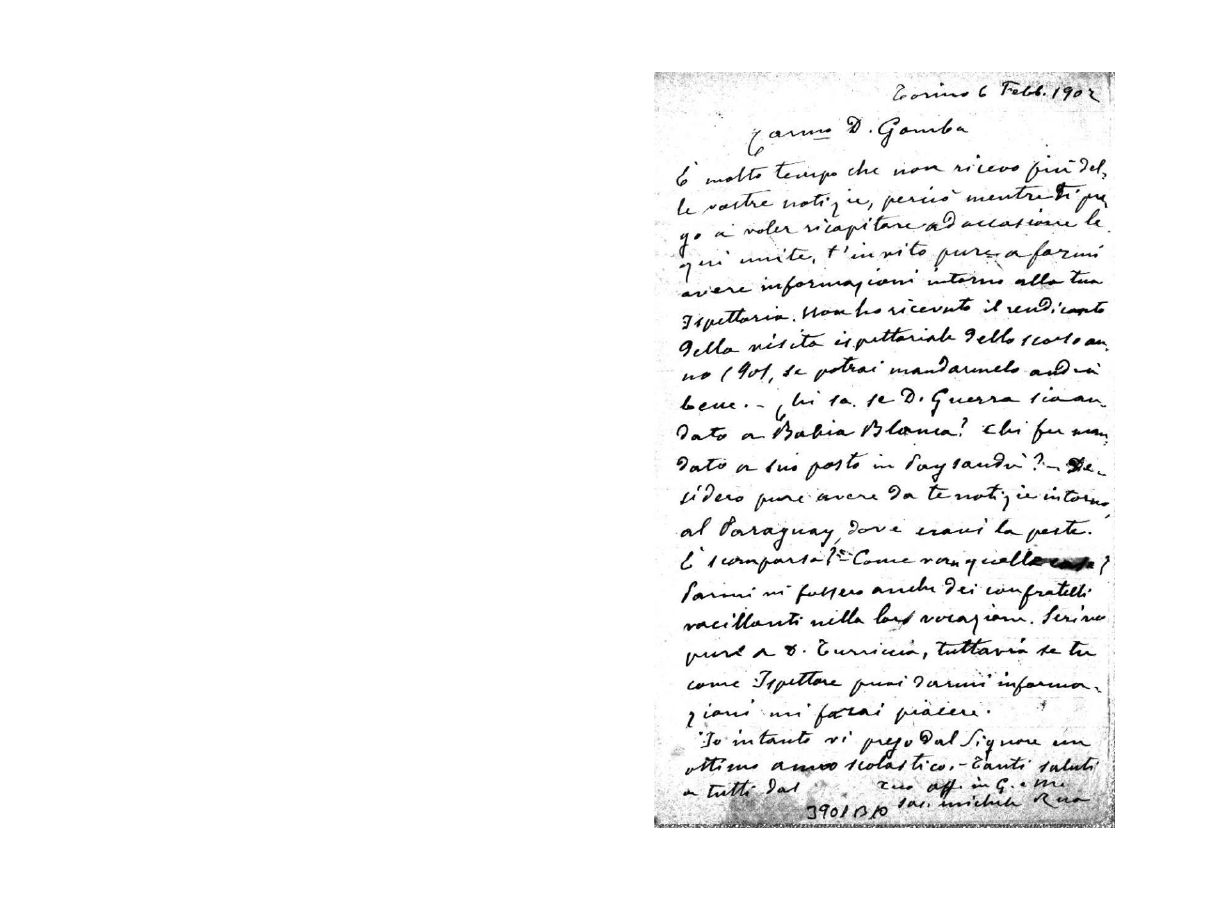 Torino 6 Febb. 1902
Carmo D. Gamba
È molto tempo che non ricevo più del-
le vostre notizie, perciò mentre ti pre
go a voler ricapitare ad occasione le
qui unite, t'invito pure a farmi
avere informazioni intorno alla tua
Ispettoria. Non ho ricevuto il rendiconto
della visita ispettoriale dello scorso an-
no 1901, se potrai mandarmelo andrà
bene. - Chi sa se D. Guerra sia an-
dato a Bahia Blanca? Chi fu man
dato a suo posto in Paysandù? - De-
sidero pure avere da te notizie intorno
al Paraguay, dove eravi la peste.
È scomparsa? - Come van quelle case?
Parmi vi fossero anche dei confratelli
vacillanti nella loro vocazione. Scrivo
pure a D. Turriccia, tuttavia se tu
come Ispettore puoi darmi informa-
zioni mi farai piacere.
Io intanto vi prego dal Signore un
ottimo anno scolastico. - Tanti saluti
a tutti dal tuo aff. in G. e M.
Sac. Michele Rua
3901 B10